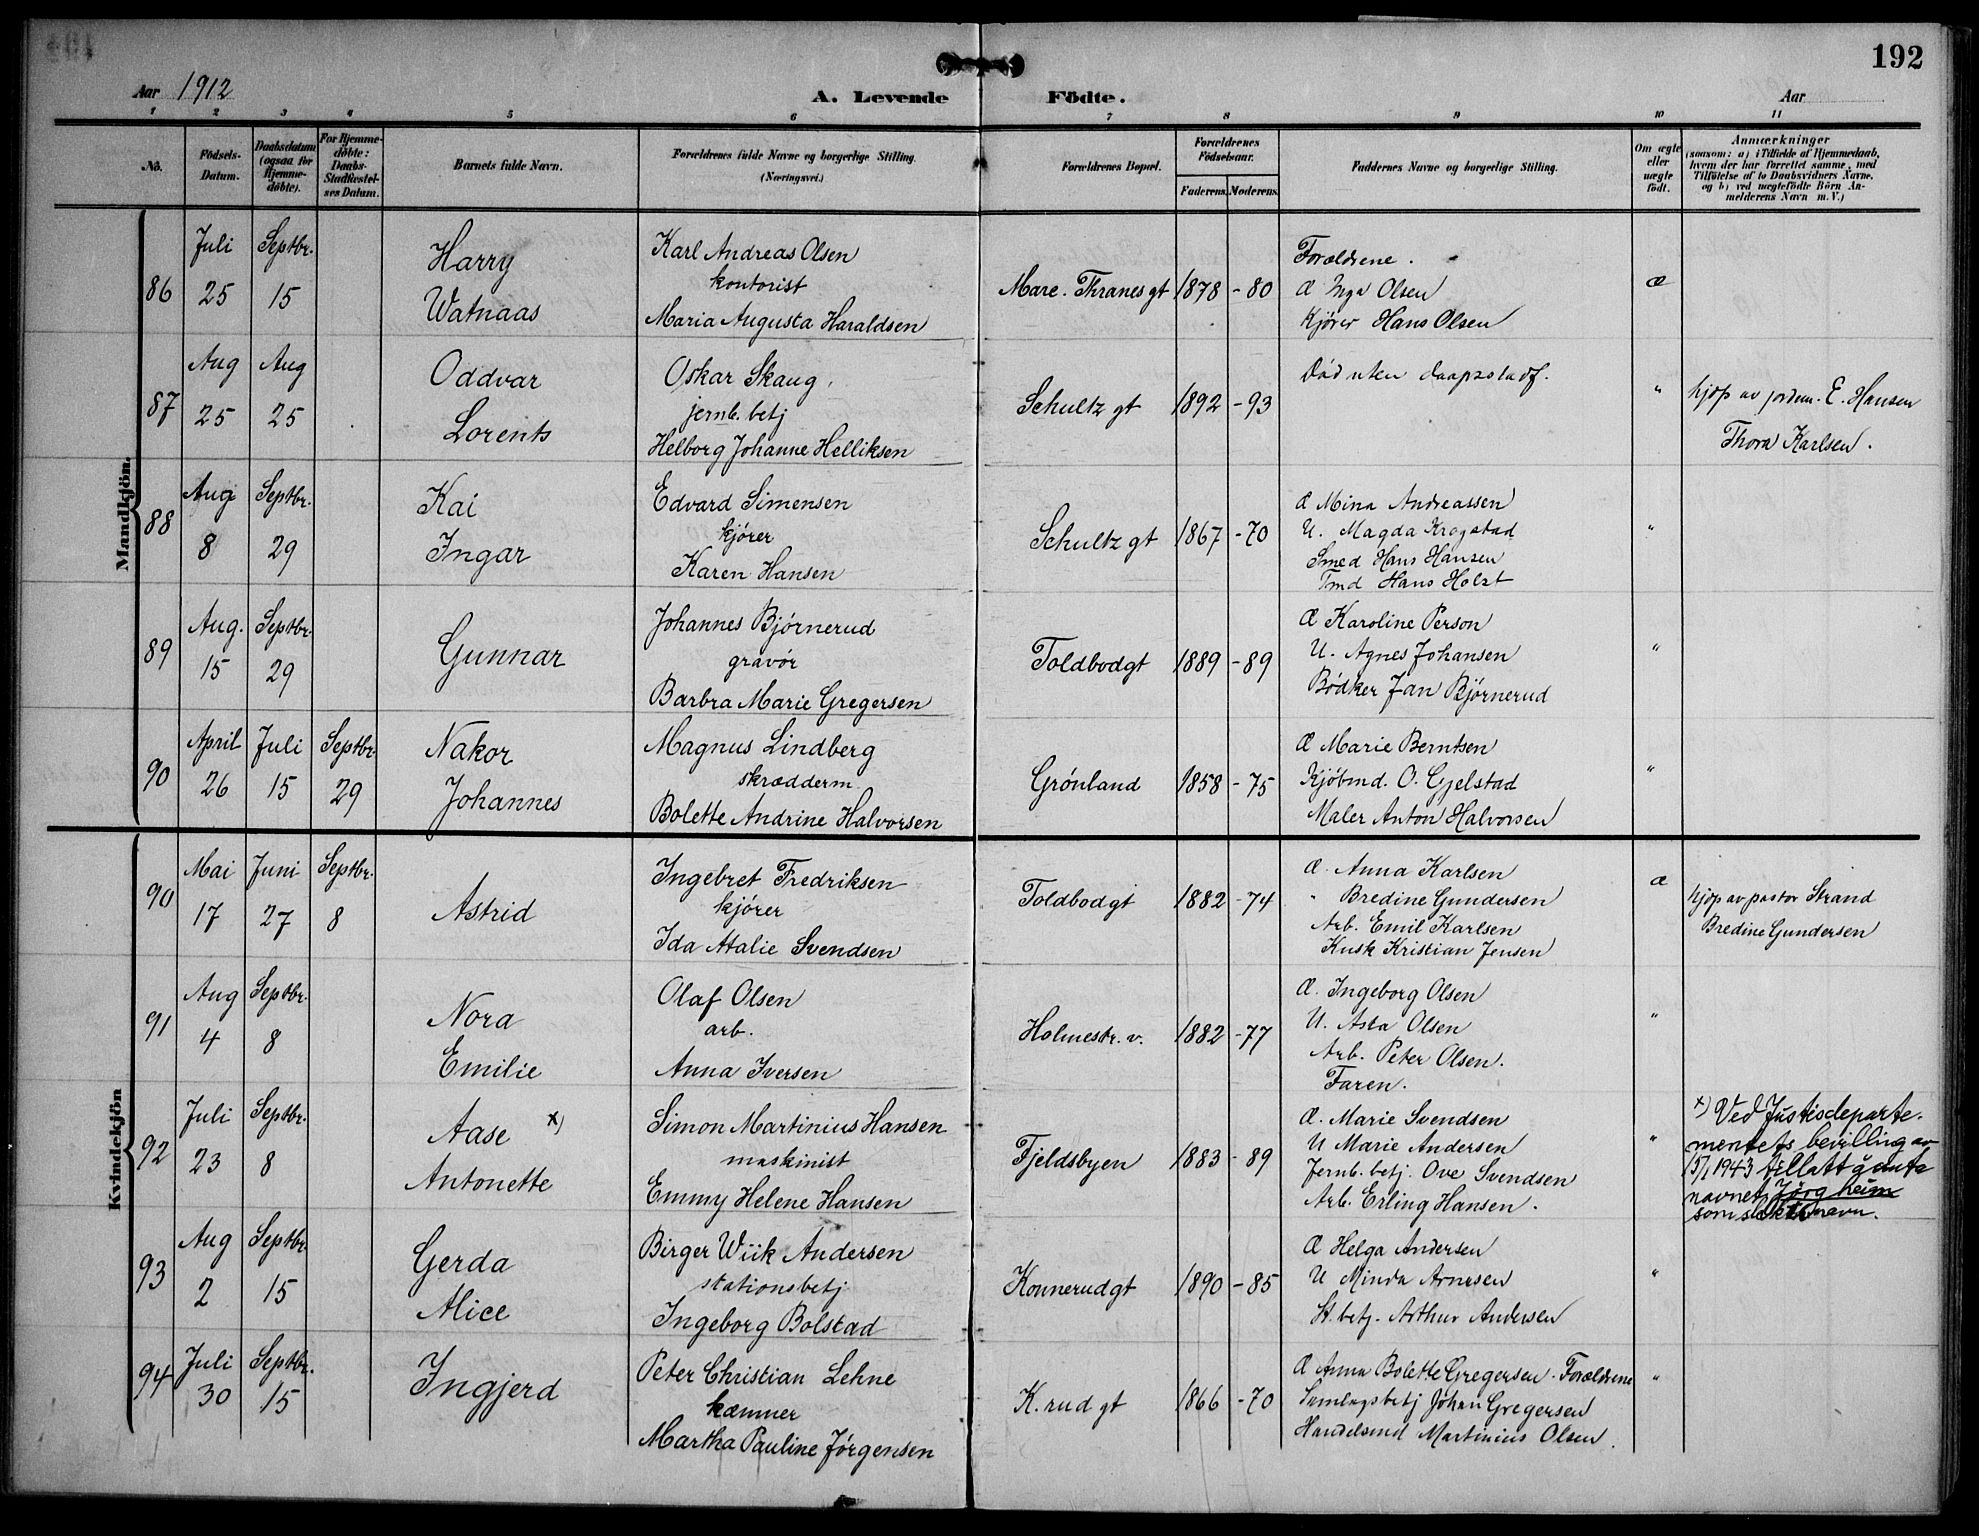 192
Aar 1912
A. Levende Födte.
Aar
1 2 3 4 5 6 7 8 9 10 11
No.
Födsels-Datum.
Daabsdatum (ogsaa for Hjemme-döbte).
For Hjemme-döbte: Daabs-Stadfæstel-ses Datum.
Barnets fulde Navn.
Forældrenes fulde Navne og borgerlige Stilling.
(Næringsvei.)
Forældrenes Bopæl.
Forældrenes Födselsaar.
Faderens. Moderens.
Faddernes Navne og borgerlige Stilling.
Om ægte eller uægte födt.
Anmærkninger
(saasom: a) i Tilfælde af Hjemmedaab,
hvem der har forrettet samme, med
Tilföielse af to Daabsvidners Navne,
og b) ved uægtefödte Börn An-
melderens Navn m. V.)
Mandkjön.
86
Juli 25
Septbr. 15
Harry
Watnaas
Karl Andreas Olsen
kontorist
Maria Augusta Haraldsen
Marc. Thranes gt
1878 - 80
Forældrene.
Æ Inga Olsen
Kjører Hans Olsen
Æ
87
Aug 25
Aug 25
Oddvar
Lorents
Oskar Skaug
jernb. betj
Helborg Johanne Helliksen
Schultz gt
1892 - 93
Død uten daapsstadf.
"
hjdp av jordm. E. Hansen
Thora Karlsen.
88
Aug 8
Septbr. 29
Kai
Ingar
Edvard Simensen
kjører
Karen Hansen
Schultz gt
1867 - 70
Æ Mina Andreassen
U. Magda Krogstad
Smed Hans Hansen
Tmd Hans Holst
"
89
Aug. 15
Septbr. 29
Gunnar
Johannes Bjørnerud
gravør
Barbra Marie Gregersen
Toldbodgt
1889 - 89
Æ Karoline Person
U. Agnes Johansen
Bødker Jan Bjørnerud
"
90
April 26
Juli 15
Septbr. 29
Nakor
Johannes
Magnus Lindberg
skrædderm
Bolette Andrine Halvorsen
Grønland
1858 - 75
Æ Marie Berntsen
Kjøbmd. O. Gjelstad
Maler Anton Halvorsen
"
Kvindekjön
90
Mai 17
Juni 27
Septbr. 8
Astrid
Ingebret Fredriksen
kjører
Ida Atalie Svendsen
Toldbodgt
1882 - 74
Æ. Anna Karlsen
" Bredine Gundersen
Arb. Emil Karlsen
Kusk Kristian Jensen
Æ
hjdp av pastor Strand
Bredine Gundersen
91
Aug 4
Septbr. 8
Nora
Emilie
Olaf Olsen
arb.
Anna Iversen
Holmestr. v.
1882 - 77
Æ. Ingeborg Olsen
U. Asta Olsen
Arb. Peter Olsen.
Faren.
"
92
Juli 23
Septbr. 8
Aase x)
Antonette
Simon Martinius Hansen
maskinist
Emmy Helene Hansen
Fjeldsbyen
1883 - 89
Æ. Marie Svendsen
U Marie Andersen
Jernb. betj. Ove Svendsen
Arb. Erling Hansen.
"
x) Ved Justisdeparte-
mentets bevilling av
1943 tillatt å
navnet Jörgheim
som slektsnavn.
93
Aug 2
Septbr. 15
Gerda
Alice
Birger Wiik Andersen
stationsbetj
Ingeborg Bolstad
Konnerudgt
1890 - 85
Æ Helga Andersen
U Minda Arnesen
St. betj. Arthur Andersen
"
94
Juli 30
Septbr. 15
Ingjerd
Peter Christian Lehne
kæmner
Martha Pauline Jørgensen
K. rud gt
1866 - 70
Æ Anna Bolette Gregersen. Forældrene
Samlagsbetj Johan Gregersen
Handelsmd Martinius Olsen.
"